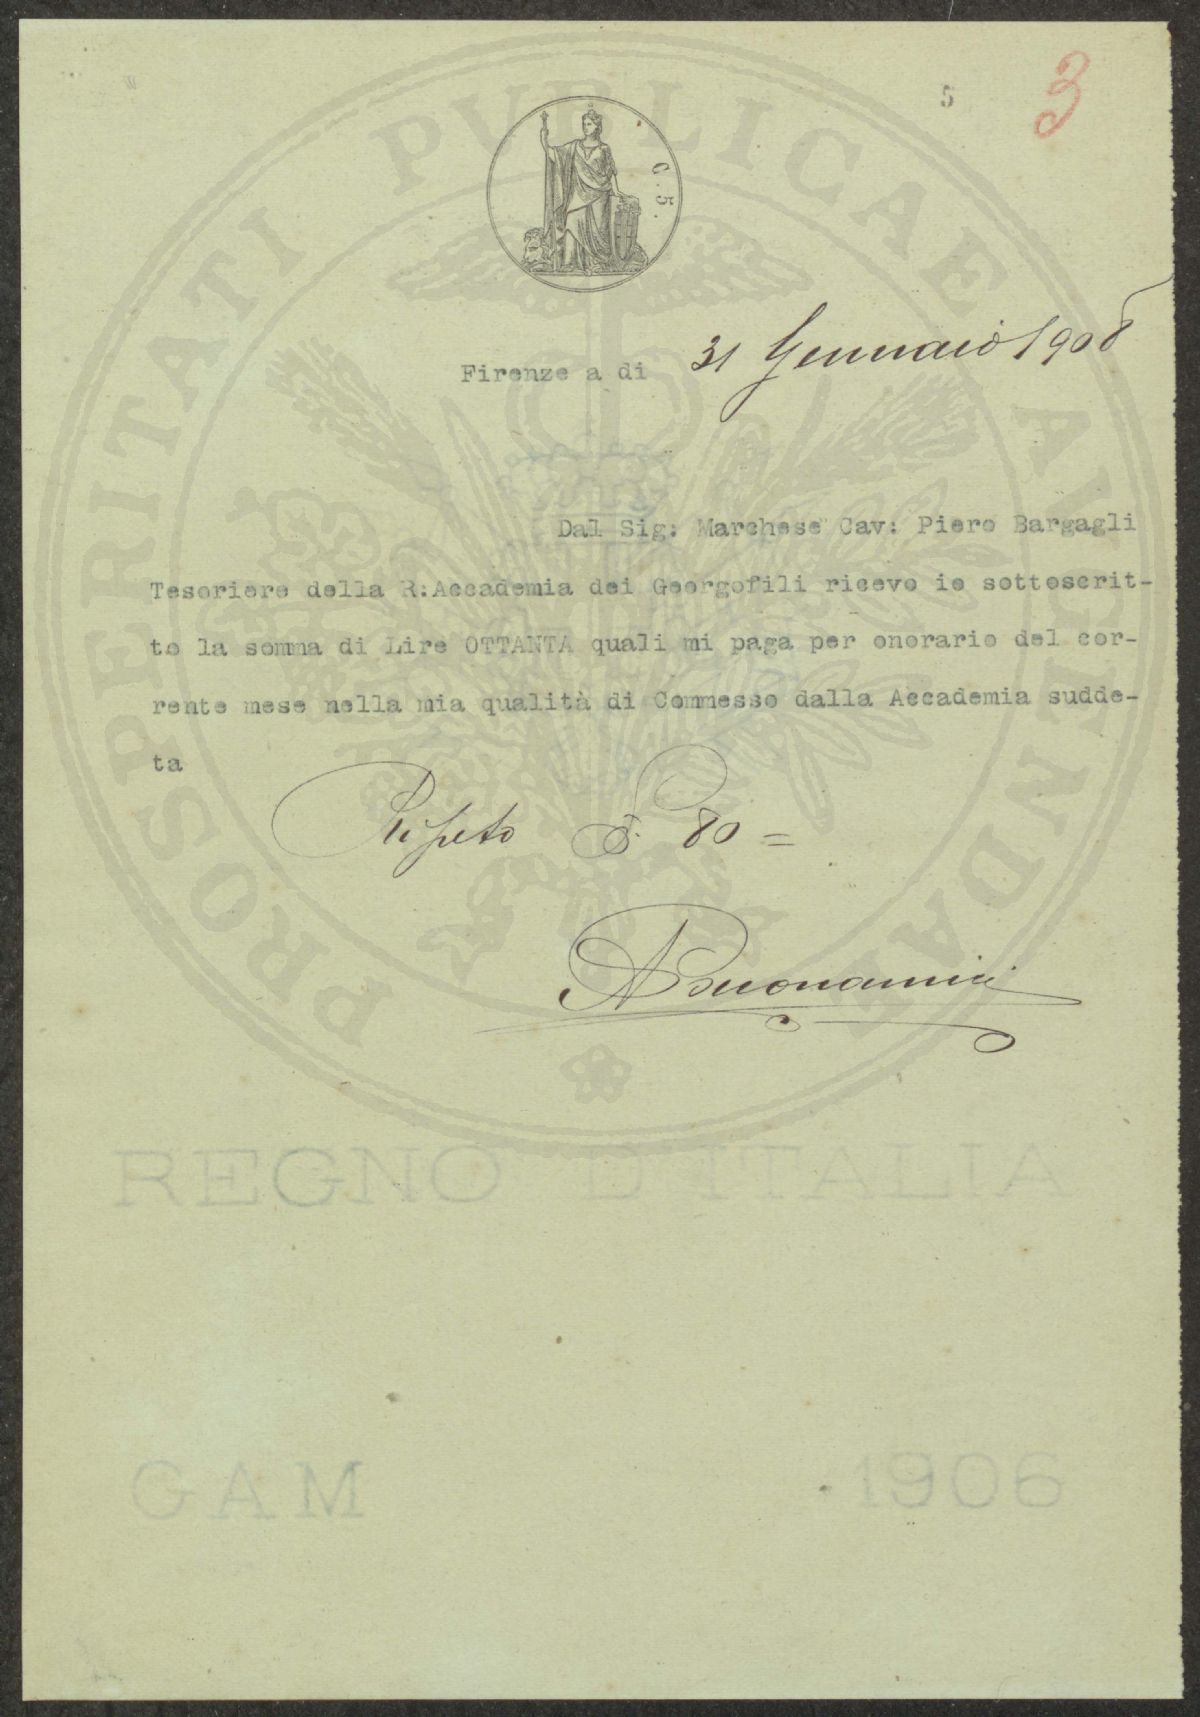 5
3
C. 5.
Firenze a di 31 Gennaio 1908
Dal Sig: Marchese Cav: Piero Bargagli
Tesoriere della R:Accademia dei Georgofili ricevo io sottoscrit-
to la somma di Lire OTTANTA quali mi paga per onorario del cor-
rente mese nella mia qualità di Commesso dalla Accademia sudde-
ta
Ripeto £ 80 =
A Buonamici
PROSPERITATI PUBLICAE AUGENDAE
REGNO D'ITALIA
GAM 1906